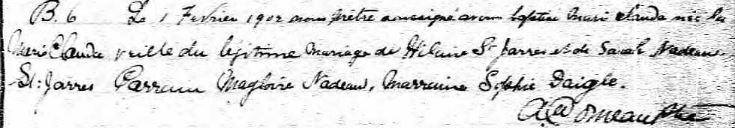 B. 6 Le 1 Fevrier 1902 nous prêtre soussigné avons baptisé Marie Clauda née la
Marie Clauda veille du légitime mariage de Hilaire St Jarres et de Sarah Nadeau
St. Jarres Parrain Magloire Nadeau, Marraine Sophie Daigle.
Ptre